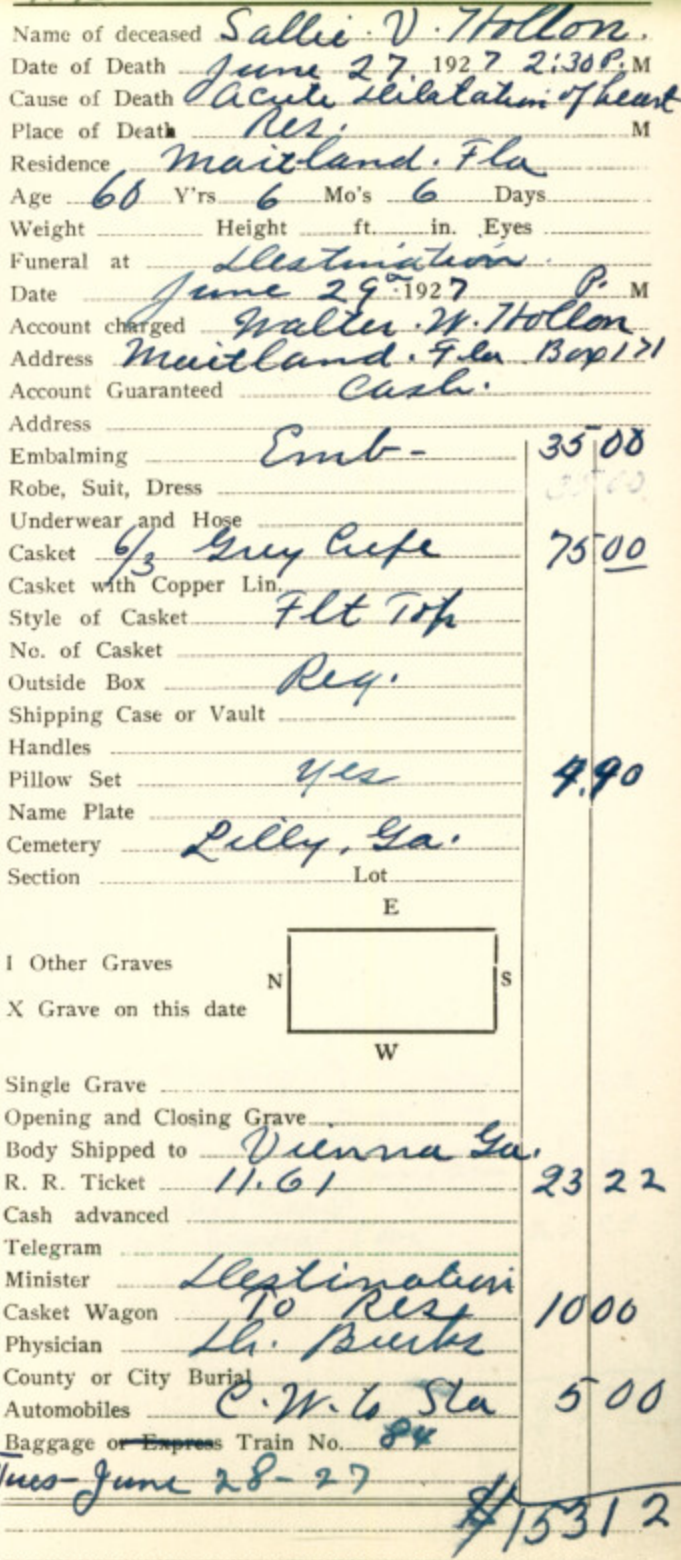 Name of deceased Sallie V. Hollon.
Date of Death June 27 1927 2:30 P. M
Cause of Death Acute Dilatation of heart
Place of Death Res. M
Residence Maitland. Fla
Age 60 Y'rs 6 Mo's 6 Days
Weight Height ft. in. Eyes
Funeral at Destination.
Date June 29" 1927 P. M
Account charged Walter. W. Hollon
Address Maitland. Fla Box 171
Account Guaranteed Cash.
Address
Embalming Emb- 35 00
Robe, Suit, Dress 35 00
Underwear and Hose
Casket 6/3 Grey Crepe 75 00
Casket with Copper Lin.
Style of Casket Flt Top
No. of Casket
Outside Box Reg.
Shipping Case or Vault
Handles
Pillow Set Yes 4.90
Name Plate
Cemetery Lilly, Ga.
Section Lot
E
I Other Graves
N S
X Grave on this date
W
Single Grave
Opening and Closing Grave
Body Shipped to Vienna Ga.
R. R. Ticket 11.61 23 22
Cash advanced
Telegram
Minister Destination
Casket Wagon To Res 10 00
Physician Dr. Burks
County or City Burial
Automobiles C. W. to Sta 5 00
Baggage or Express Train No. 84
Tues- June 28-27
$153 12